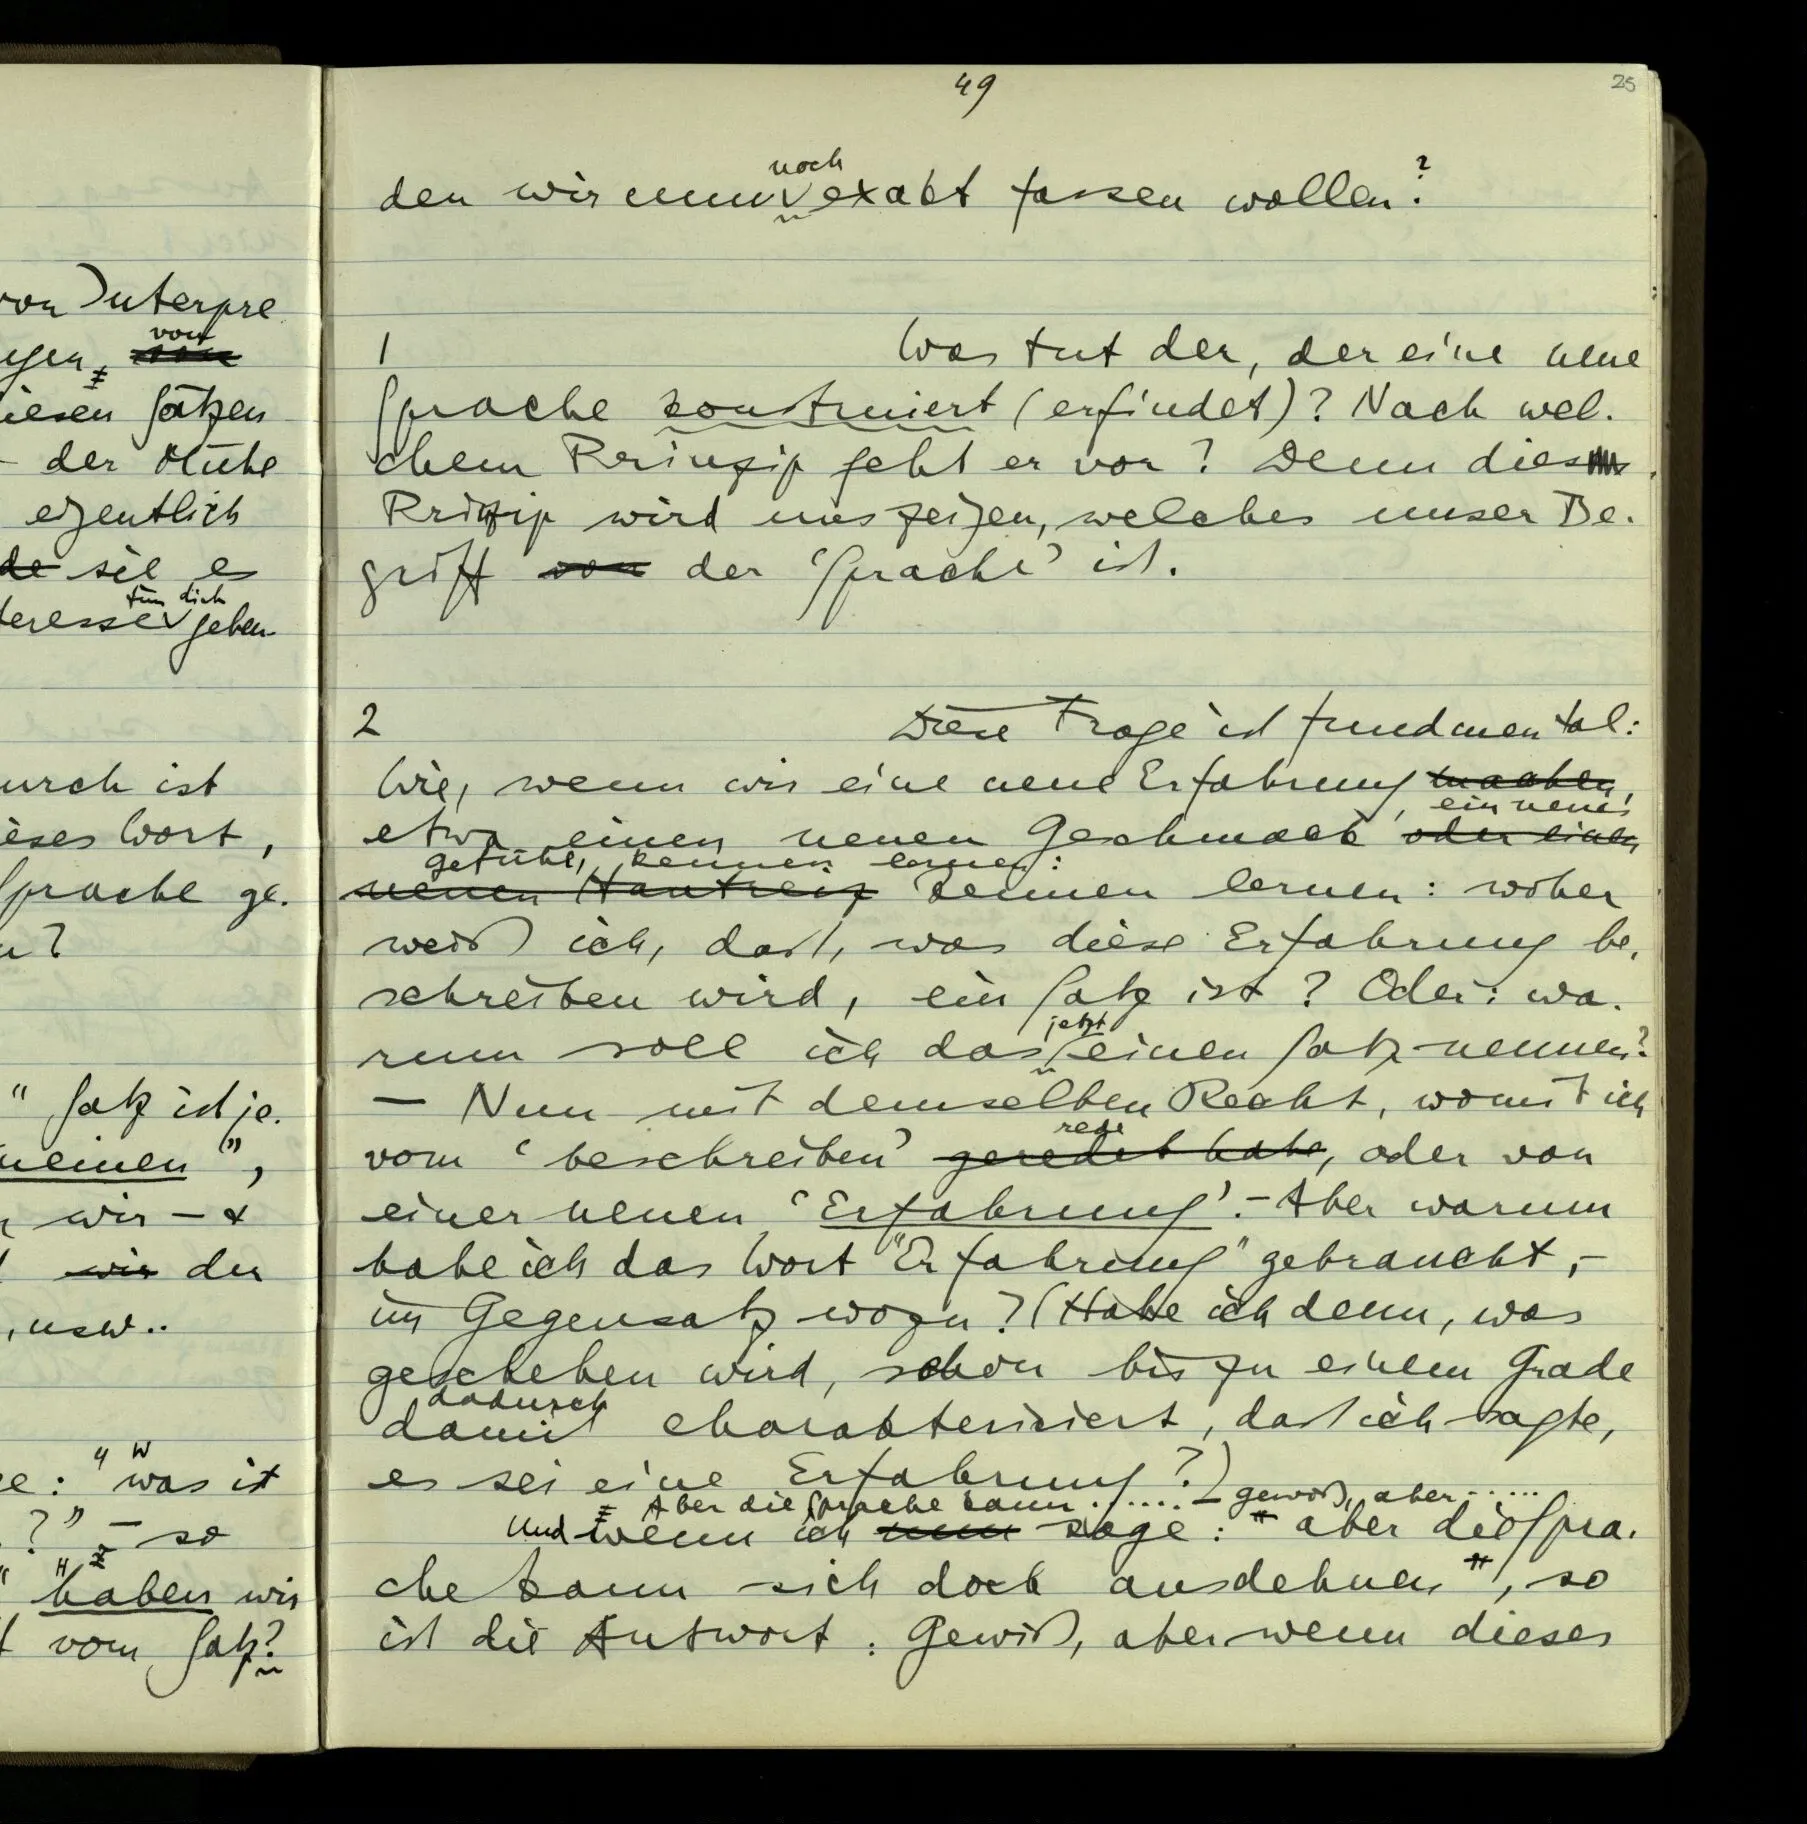 von Interpre
von
gen, von
iesen Sätzen
- der Mühe
eigentlich
de sie es
für dich
teresse geben.
urch ist
ieses Wort,
Sprache ge-
n?
" Satz ist je-
meinen",
wir – &
wir der
, usw..
W
e: "was ist
?" – so
"haben wir
t vom Satz?
49
25
noch
den wir nun exakt fassen wollen?
1 Was tut der, der eine neue
Sprache konstruiert (erfindet)? Nach wel-
chem Prinzip geht er vor? Denn dies
Prinzip wird uns zeigen, welches unser Be-
griff von der 'Sprache' ist.
2 Diese Frage ist fundmental:
Wie, wenn wir eine neue Erfahrung machen,
, ein neues
etwa einen neuen Geschmack oder einen
Gefühl, kennen lernen:
neuen Hautreiz kennen lernen: woher
weiß ich, daß, was diese Erfahrung be-
schreiben wird, ein Satz ist? Oder: wa-
jetzt
rum soll ich das einen Satz nennen?
– Nun mit demselben Recht, womit ich
rede
vom 'beschreiben' geredet habe, oder von
einer neuen 'Erfahrung'. – Aber warum
habe ich das Wort "Erfahrung" gebraucht, –
im Gegensatz wozu? (Habe ich denn, was
geschehen wird, schon bis zu einem Grade
dadurch
damit charakterisiert, daß ich sagte,
es sei eine Erfahrung?)
Aber die Sprache kann ...... – gewiß, aber .....
Und wenn ich nun sage: "aber die Spra-
che kann sich doch ausdehnen", so
ist die Antwort: Gewiß, aber wenn dieses